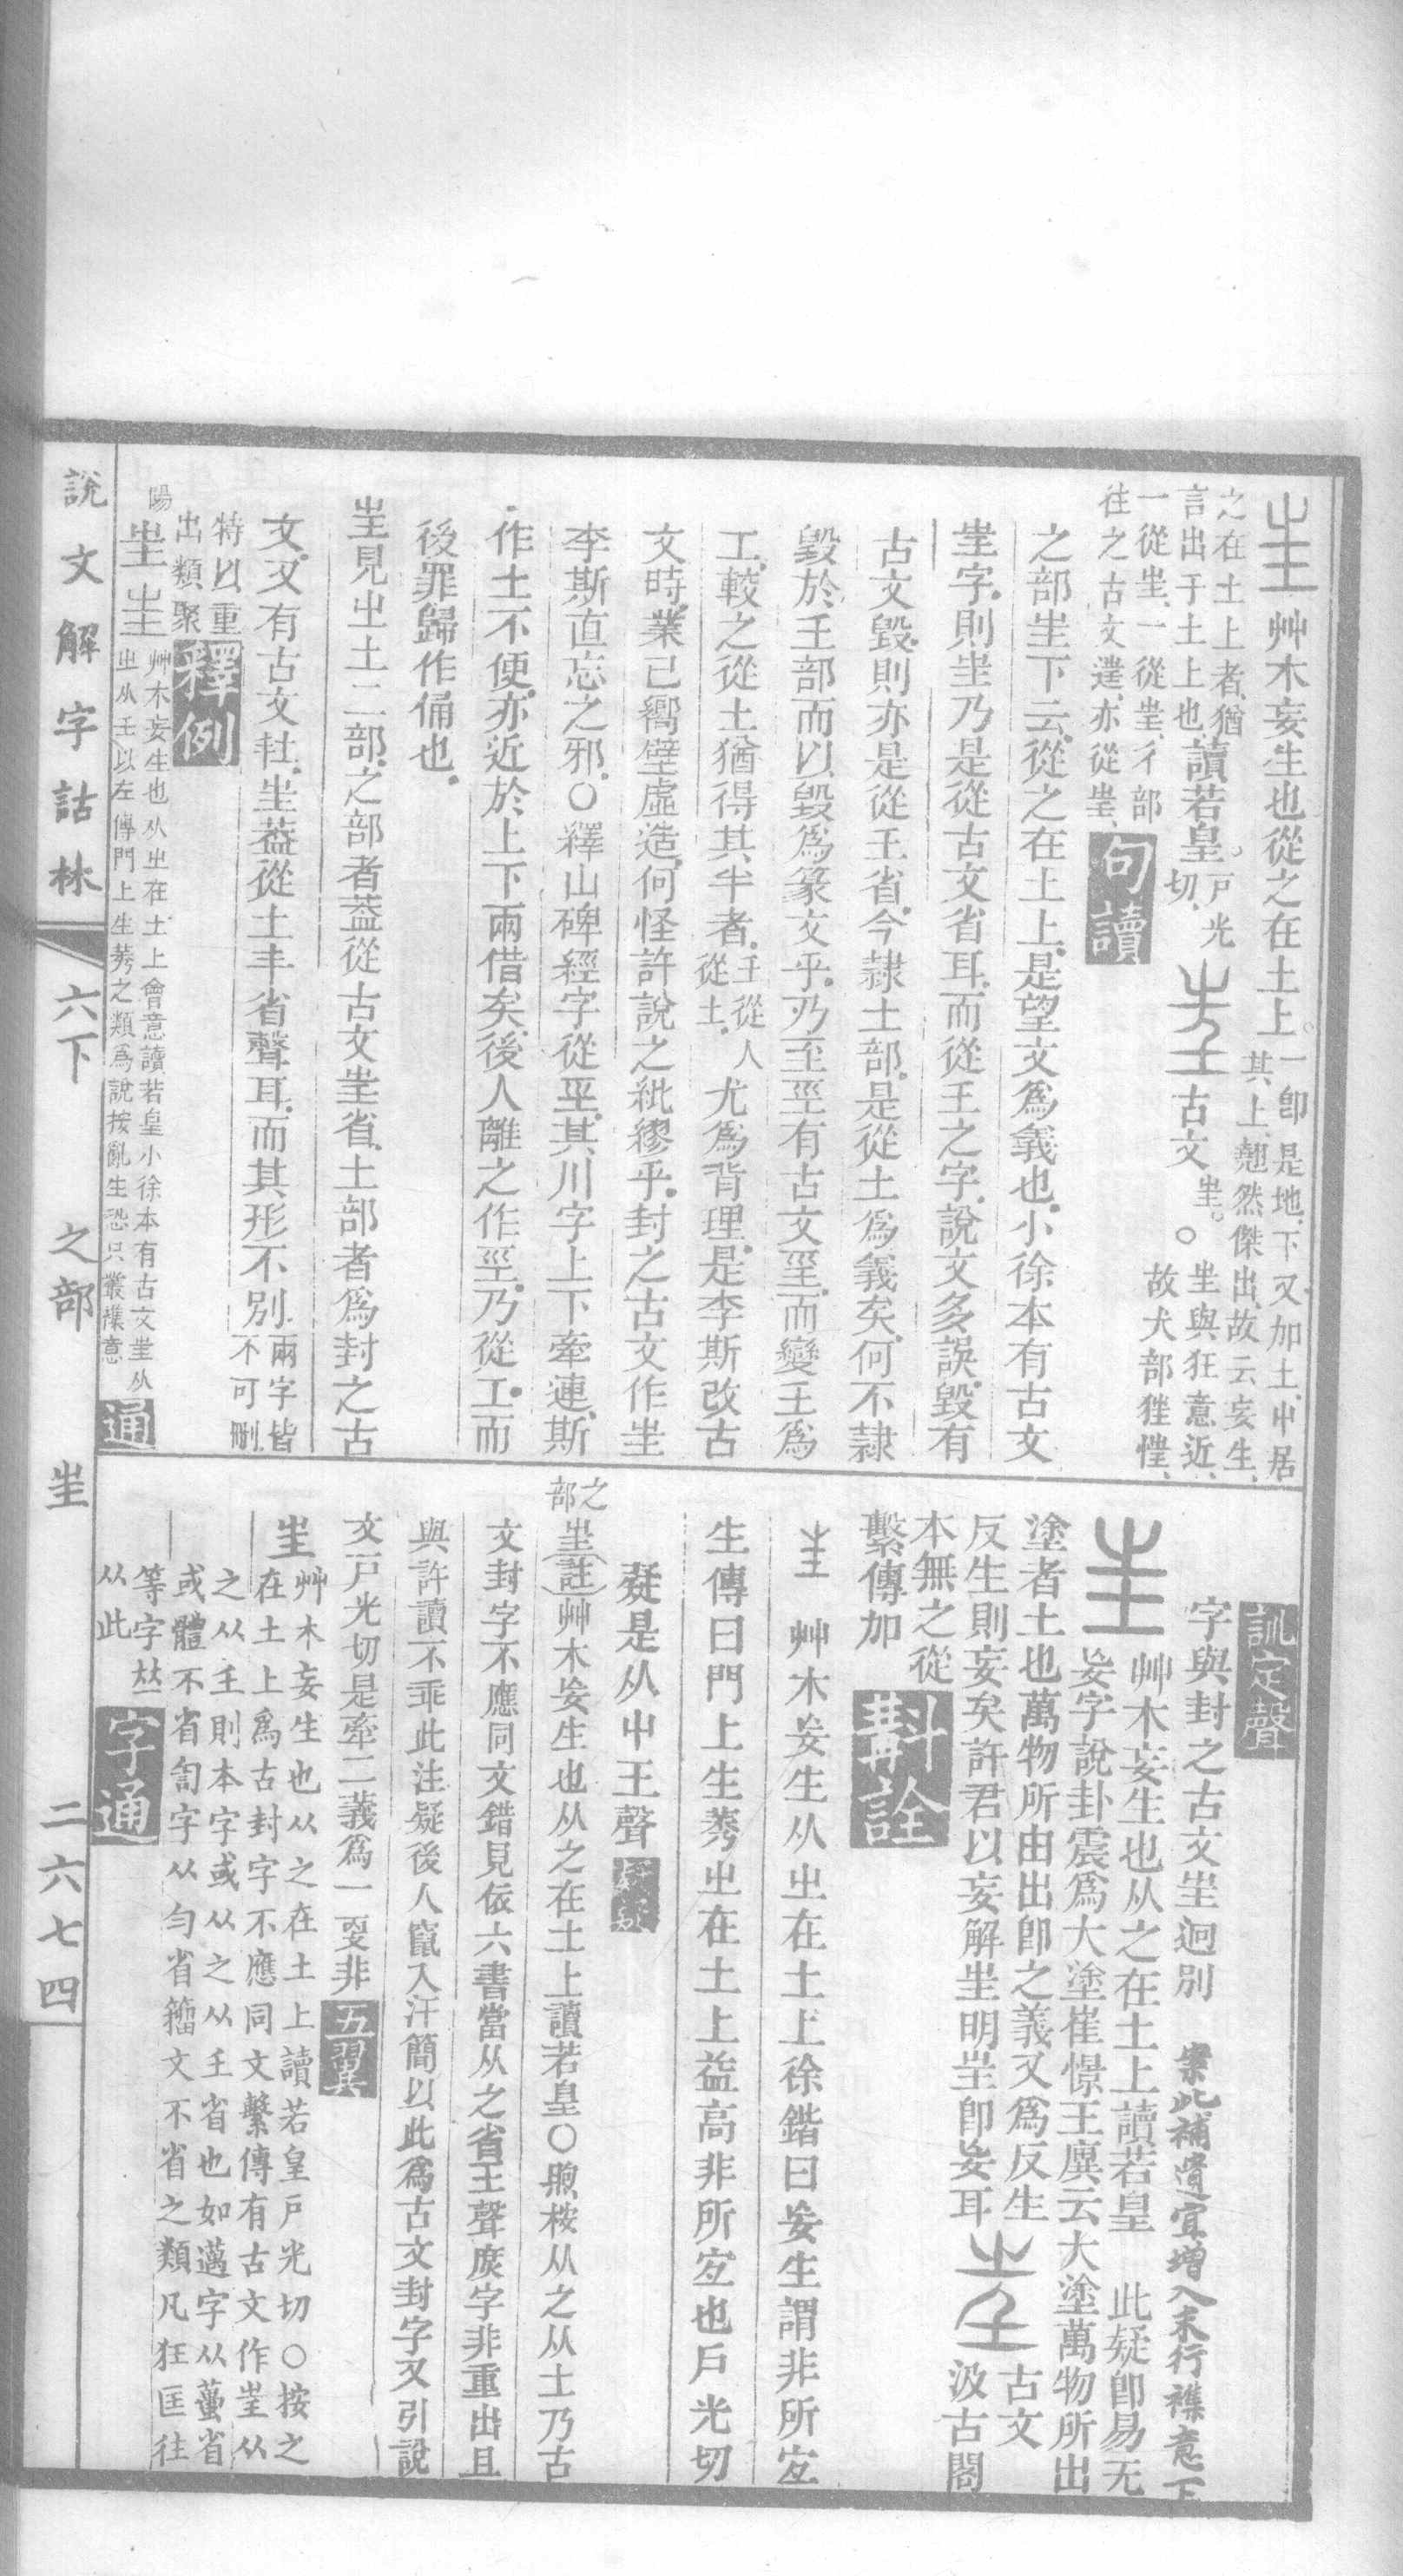 㞷艸木妄生也從之在土上一卽是地下又加土屮居
其上翹然傑出故云妄生
之在土上者猶
言出于土上也讀若皇戶光切𡉚古文㞷○㞷與狂意近
故犬部狌
一從㞷一從㞷彳部
往之古文𨓹亦從㞷句讀
之部㞷下云從之在土上是望文爲義也小徐本有古文
㞷字則㞷乃是從古文省耳而從王之字說文多誤毀有
古文毀則亦是從王省今隸土部是從土爲義矣何不隸
毀於王部而以毀爲篆文乎乃至巠有古文巠而變王爲
工較之從土猶得其半者王從人
從土尤爲背理是李斯改古
文時業已嚮壁虛造何怪許說之紕繆乎封之古文作㞷
李斯直忘之邪○釋山碑經字從巠其川字上下牽連斯
作土不便亦近於上下兩借矣後人離之作巠乃從工而
後罪歸作俑也
㞷見㞢土二部之部者蓋從古文㞷省土部者爲封之古
文又有古文𡊽㞷蓋從土丰省聲耳而其形不別兩字皆
不可刪
特以重
出類聚釋例
陽㞷㞷艸木妄生也从㞢在土上會意讀若皇小徐本有古文㞷从
㞢从王以左傳門上生莠之類爲說按亂生恐只叢襍意通
訓定聲
字與封之古文㞷迥別案此補遺宜增入末行襍意下
㞷艸木妄生也从之在土上讀若皇此疑卽易无
妄字說卦震爲大塗崔憬王廙云大塗萬物所出
塗者土也萬物所由出卽之義又爲反生
反生則妄矣許君以妄解㞷明㞷卽妄耳𡉚古文
汲古閣
本無之從
繫傳加斠詮
㞷艸木妄生从㞢在土上徐鍇曰妄生謂非所宜
生傳曰門上生莠㞢在土上益高非所宜也戶光切
疑是从屮王聲
之部㞷註艸木妄生也从之在土上讀若皇○煦桉从之从土乃古
文封字不應同文錯見依六書當从之省王聲庶字非重出且
與許讀不乖此注疑後人竄入汗簡以此爲古文封字又引說
文戶光切是牽二義爲一叓非五翼
㞷艸木妄生也从之在土上讀若皇戶光切○按之
在土上爲古封字不應同文繫傳有古文作㞷从
之从王則本字或从之从王省也如邁字从蠆省
或體不省訇字从勻省籀文不省之類凡狂匡往
等字𠀤
从此字通
說文解字詁林 六下 之部 㞷 二六七四